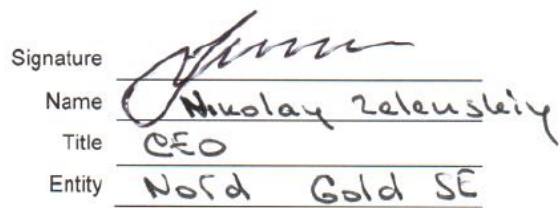 Signature
Name Nikolay Zelenskiy
Title CEO
Entity Nord Gold SE